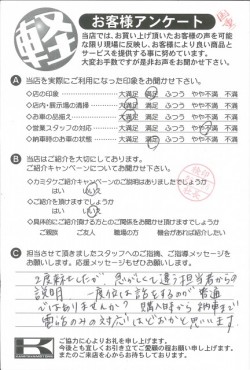 軽
お客様アンケート
当店では、お買い上げ頂いたお客様の声を可能
な限り現場に反映し、お客様により良い商品と
サービスを提供する事に努めています。
大変お手数ですが是非お声をお聞かせ下さい。
A 当店を実際にご利用になった印象をお聞かせ下さい。
◇店の印象 大満足 満足 ふつう やや不満 不満
◇店内・展示場の清掃 大満足 満足 ふつう やや不満 不満
◇お車の品揃え 大満足 満足 ふつう やや不満 不満
◇営業スタッフの対応 大満足 満足 ふつう やや不満 不満
◇納車時のお車の状態 大満足 満足 ふつう やや不満 不満
B 当店はご紹介を大切にしております。
ご紹介キャンペーンについてお聞かせ下さい。
◇カミタケご紹介キャンペーンのご説明はありましたでしょうか
はい いいえ
◇ご紹介を頂けますでしょうか
はい いいえ
◇具体的にご紹介頂ける方とのご関係をお聞かせ頂けますでしょうか
ご親戚 ご友人 職場の方 機会があれば紹介したい
C 担当させて頂きましたスタッフへのご指摘、ご指導メッセージを
お願いします。応援メッセージもぜひお願いします。
2度来ましたが 違う担当者からの
説明 一度位は話をするのが普通
ではありませんか? 購入時から納車まで
電話のみの対応はどおかと思います。
K
ご協力に心よりお礼を申し上げます。
今後とも宜しくお引き立てご愛顧の程お願い申し上げます。
またのご来店を心からお待ちしております。